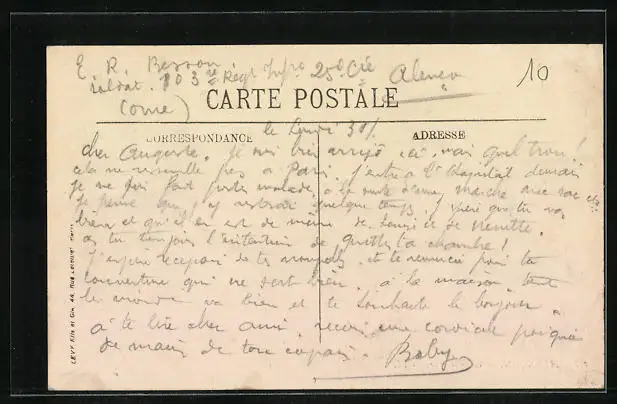 E. R. Besson
soldat. 103e Régt Infie 25e Cie Alençon
(Orne)
10
CARTE POSTALE
CORRESPONDANCE
ADRESSE
le Lundi 30/
cher Auguste. Je suis bien arrivé ici, mais quel trou!
cela ne ressemble pas à Paris. J'entre à l'Hôpital demain
je me suis fait porter malade, à la suite d'une marche avec sac etc.
Je pense que j'y resterai quelque temps. J'
bien et qu'il en est de même de Louis et de
as tu toujours l'intention de quitter ta chambre!
J'espère recevoir de tes nouvelles et te remercie pour ta
couverture qui me sert bien. à la maison tout
le monde va bien et te souhaite le bonjour.
à te lire cher ami, reçois une cordiale poignée
de main de ton copain. Baby
LEVY Fils et Cie, 44, Rue Letellier, Paris